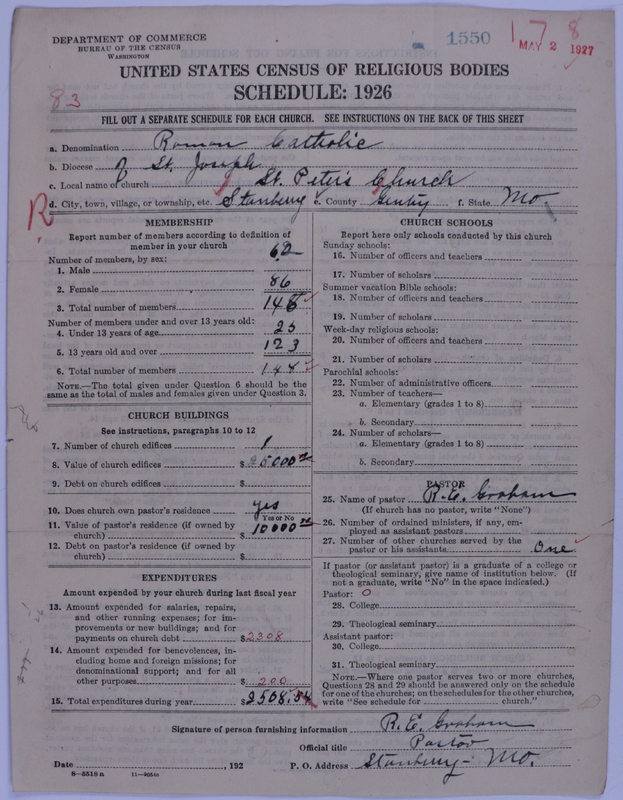 DEPARTMENT OF COMMERCE
BUREAU OF THE CENSUS
WASHINGTON
1550
178
MAY 2 1927
UNITED STATES CENSUS OF RELIGIOUS BODIES
SCHEDULE: 1926
83
FILL OUT A SEPARATE SCHEDULE FOR EACH CHURCH. SEE INSTRUCTIONS ON THE BACK OF THIS SHEET
a. Denomination Roman Catholic
b. Diocese of St. Joseph
c. Local name of church St. Peter's Church
d. City, town, village, or township, etc. Stanberry e. County Gentry f. State Mo.
R
MEMBERSHIP
Report number of members according to definition of
member in your church
Number of members, by sex:
1. Male 62
2. Female 86
3. Total number of members 148
Number of members under and over 13 years old:
4. Under 13 years of age 25
5. 13 years old and over 123
6. Total number of members 148
NOTE.—The total given under Question 6 should be the
same as the total of males and females given under Question 3.
CHURCH BUILDINGS
See instructions, paragraphs 10 to 12
7. Number of church edifices 1
8. Value of church edifices $25000
9. Debt on church edifices $
10. Does church own pastor's residence yes
Yes or No
11. Value of pastor's residence (if owned by
church) $10000
12. Debt on pastor's residence (if owned by
church) $
EXPENDITURES
Amount expended by your church during last fiscal year
13. Amount expended for salaries, repairs,
and other running expenses; for im-
provements or new buildings; and for
payments on church debt $2308
14. Amount expended for benevolences, in-
cluding home and foreign missions; for
denominational support; and for all
other purposes $200
15. Total expenditures during year $2508.54
CHURCH SCHOOLS
Report here only schools conducted by this church
Sunday schools:
16. Number of officers and teachers
17. Number of scholars
Summer vacation Bible schools:
18. Number of officers and teachers
19. Number of scholars
Week-day religious schools:
20. Number of officers and teachers
21. Number of scholars
Parochial schools:
22. Number of administrative officers
23. Number of teachers—
a. Elementary (grades 1 to 8)
b. Secondary
24. Number of scholars—
a. Elementary (grades 1 to 8)
b. Secondary
PASTOR
25. Name of pastor R.E. Graham
(If church has no pastor, write "None")
26. Number of ordained ministers, if any, em-
ployed as assistant pastors
27. Number of other churches served by the
pastor or his assistants One
If pastor (or assistant pastor) is a graduate of a college or
theological seminary, give name of institution below. (If
not a graduate, write "No" in the space indicated.)
Pastor: 0
28. College
29. Theological seminary
Assistant pastor:
30. College
31. Theological seminary
NOTE.—Where one pastor serves two or more churches,
Questions 28 and 29 should be answered only on the schedule
for one of the churches; on the schedules for the other churches,
write "See schedule for church."
Signature of person furnishing information R.E. Graham
Official title Pastor
Date , 192 P. O. Address Stanberry - Mo.
8—5518 a